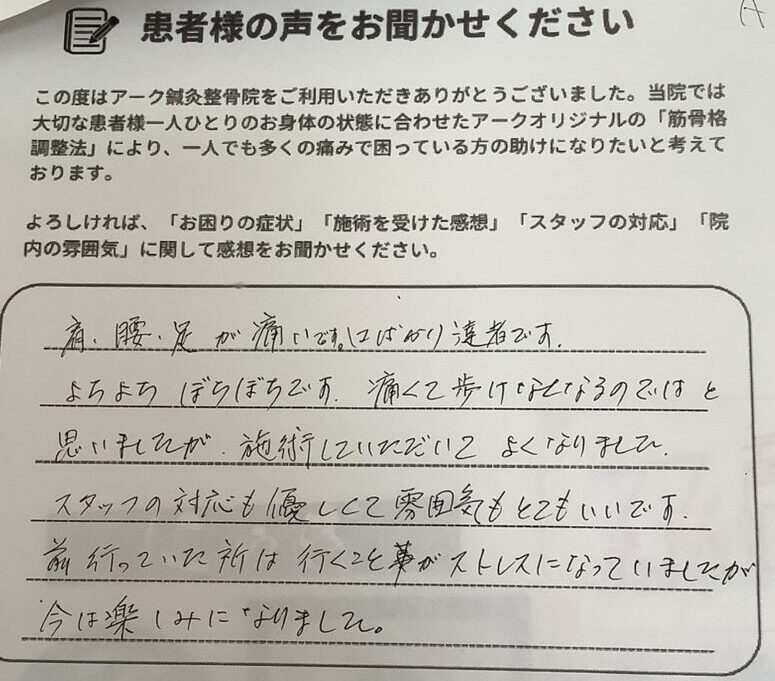 患者様の声をお聞かせください
A
この度はアーク鍼灸整骨院をご利用いただきありがとうございました。当院では
大切な患者様一人ひとりのお身体の状態に合わせたアークオリジナルの「筋骨格
調整法」により、一人でも多くの痛みで困っている方の助けになりたいと考えて
おります。
よろしければ、「お困りの症状」「施術を受けた感想」「スタッフの対応」「院
内の雰囲気」に関して感想をお聞かせください。
肩、腰、足が痛いです。口ばかり達者です。
よちよち ぼちぼちです。痛くて歩けなくなるのではと
思いましたが、施術していただいて よくなりました。
スタッフの対応も優しくて雰囲気もとてもいいです。
前行っていた所は行くことがストレスになっていましたが
今は楽しみになりました。